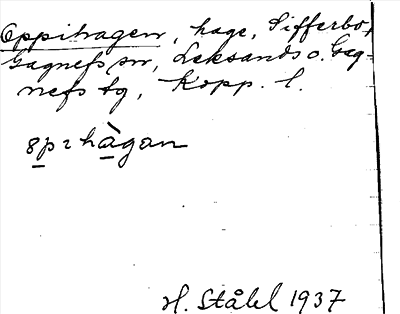 Oppihagen, hage, Sifferbo,
Gagnefs sn, Leksands o. Gag-
nefs tg, Kopp. l.
8pıhàgan
H. Ståhl 1937